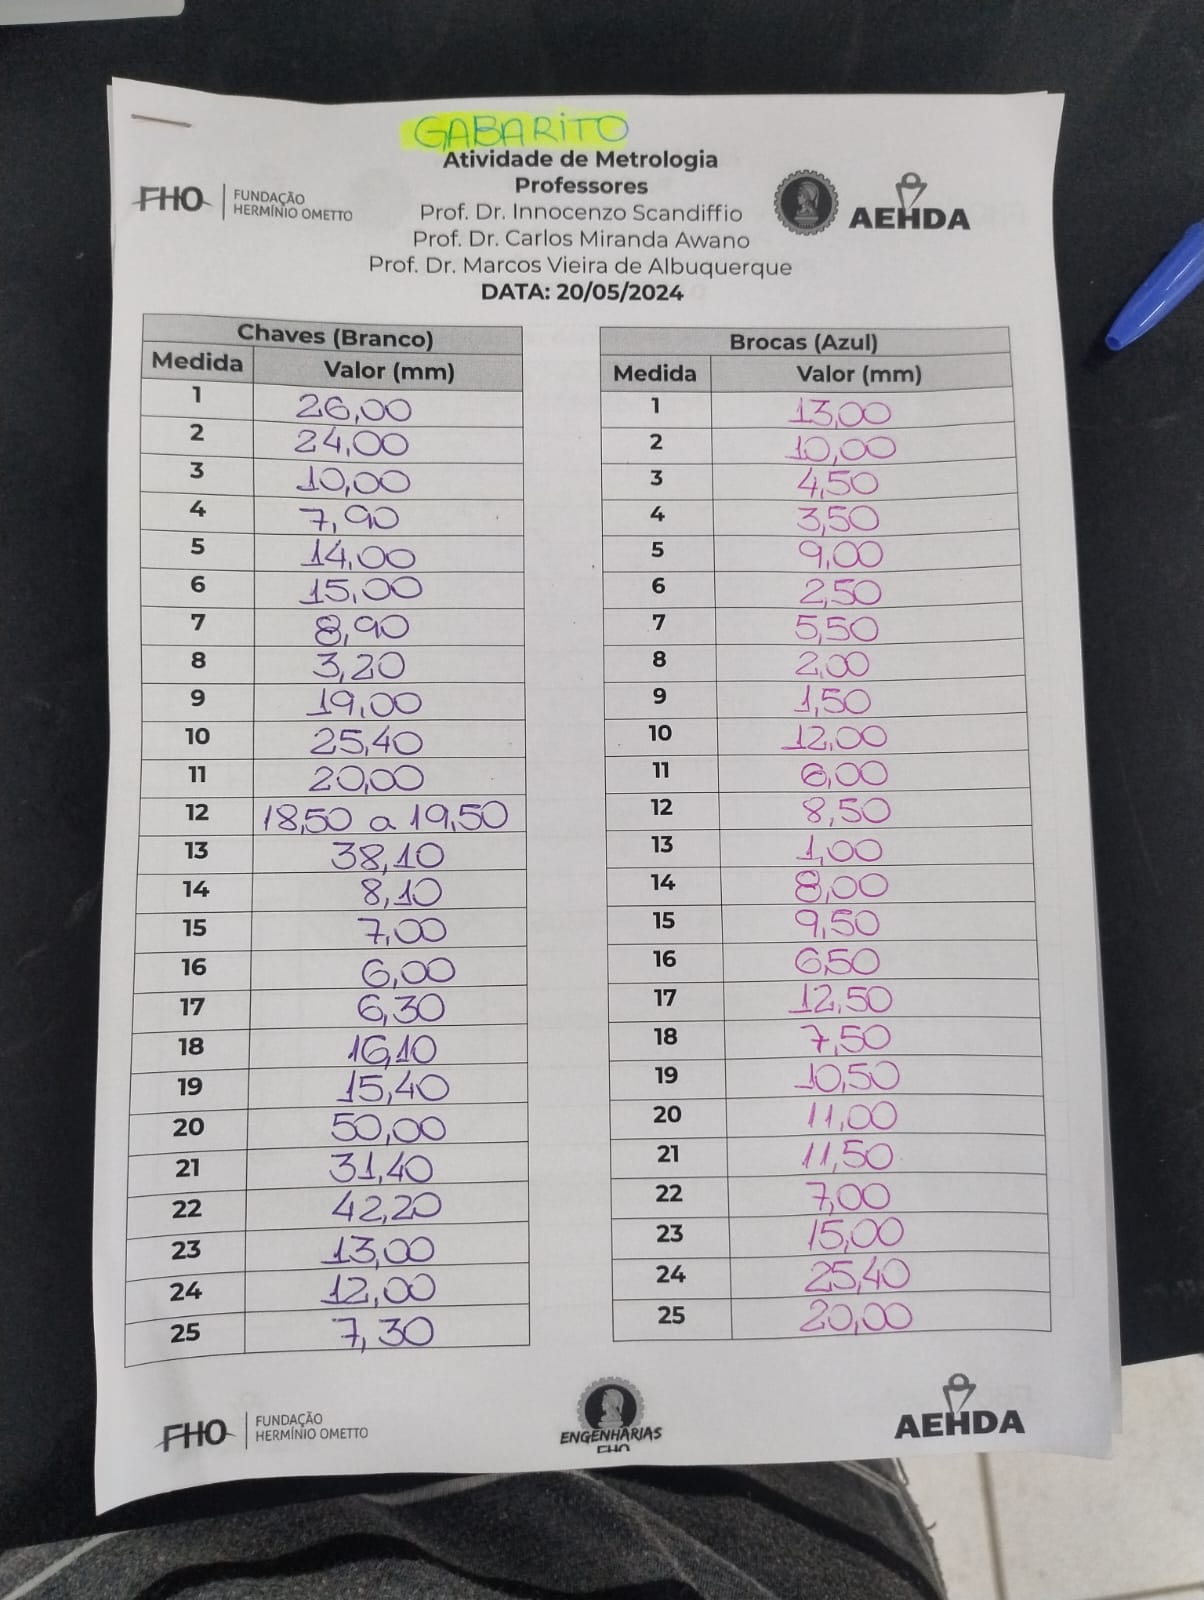 GABARITO
Atividade de Metrologia
Professores
FHO FUNDAÇÃO HERMÍNIO OMETTO
Prof. Dr. Innocenzo Scandiffio
Prof. Dr. Carlos Miranda Awano
Prof. Dr. Marcos Vieira de Albuquerque
DATA: 20/05/2024
AEHDA
Chaves (Branco)
Medida Valor (mm)
1 26,00
2 24,00
3 10,00
4 7,90
5 14,00
6 15,00
7 8,90
8 3,20
9 19,00
10 25,40
11 20,00
12 18,50 a 19,50
13 38,10
14 8,10
15 7,00
16 6,00
17 6,30
18 16,10
19 15,40
20 50,00
21 31,40
22 42,20
23 13,00
24 12,00
25 7,30
Brocas (Azul)
Medida Valor (mm)
1 13,00
2 10,00
3 4,50
4 3,50
5 9,00
6 2,50
7 5,50
8 2,00
9 1,50
10 12,00
11 6,00
12 8,50
13 1,00
14 8,00
15 9,50
16 6,50
17 12,50
18 7,50
19 10,50
20 11,00
21 11,50
22 7,00
23 15,00
24 25,40
25 20,00
FHO FUNDAÇÃO HERMÍNIO OMETTO
ENGENHARIAS
FHO
AEHDA